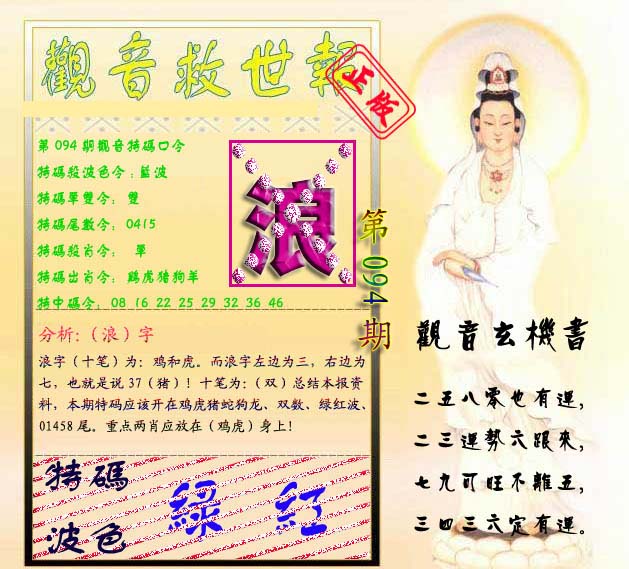 觀音救世報
正版
第094期觀音特碼口令
特碼殺波色令：藍波
特碼單雙令： 雙
特碼尾數令： 0415
特碼殺肖令： 單
特碼出肖令： 鷄虎猪狗羊
特中碼令： 08 16 22 25 29 32 36 46
浪
第094期
分析：（浪）字
浪字（十笔）为：鸡和虎。而浪字左边为三，右边为
七，也就是说 37（猪）！十笔为：（双）总结本报资
料，本期特码应该开在鸡虎猪蛇狗龙、双数、绿红波、
01458 尾。重点两肖应放在（鸡虎）身上！
特碼
波色
綠 紅
觀音玄機書
二五八零也有運，
二三運勢六跟來，
七九可旺不離五，
三四三六定有運。